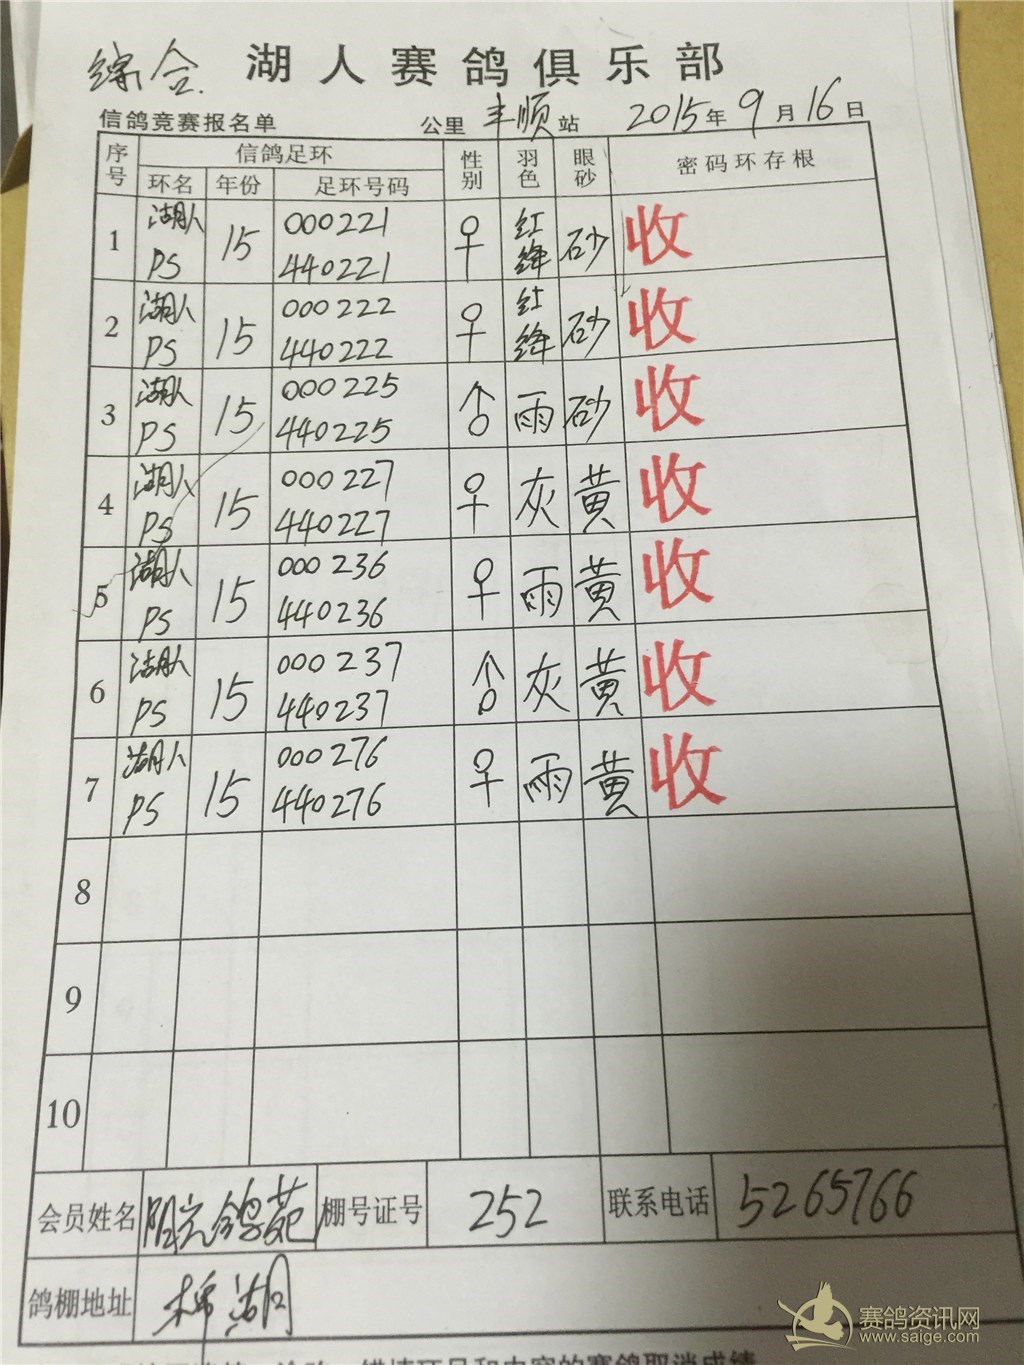 综合 湖人赛鸽俱乐部
信鸽竞赛报名单 公里 丰顺 站 2015年9月16日
序号 信鸽足环 性别 羽色 眼砂 密码环存根
环名 年份 足环号码
1 湖人 PS 15 000221 ♀ 红绛 砂 收
440221
2 湖人 PS 15 000222 ♀ 红绛 砂 收
440222
3 湖人 PS 15 000225 ♂ 雨 砂 收
440225
4 湖人 PS 15 000227 ♀ 灰 黄 收
440227
5 湖人 PS 15 000236 ♀ 雨 黄 收
440236
6 湖人 PS 15 000237 ♂ 灰 黄 收
440237
7 湖人 PS 15 000276 ♀ 雨 黄 收
440276
8
9
10
会员姓名 鸽苑 棚号证号 252 联系电话 5265766
鸽棚地址 棉湖
赛鸽资讯网
www.saige.com